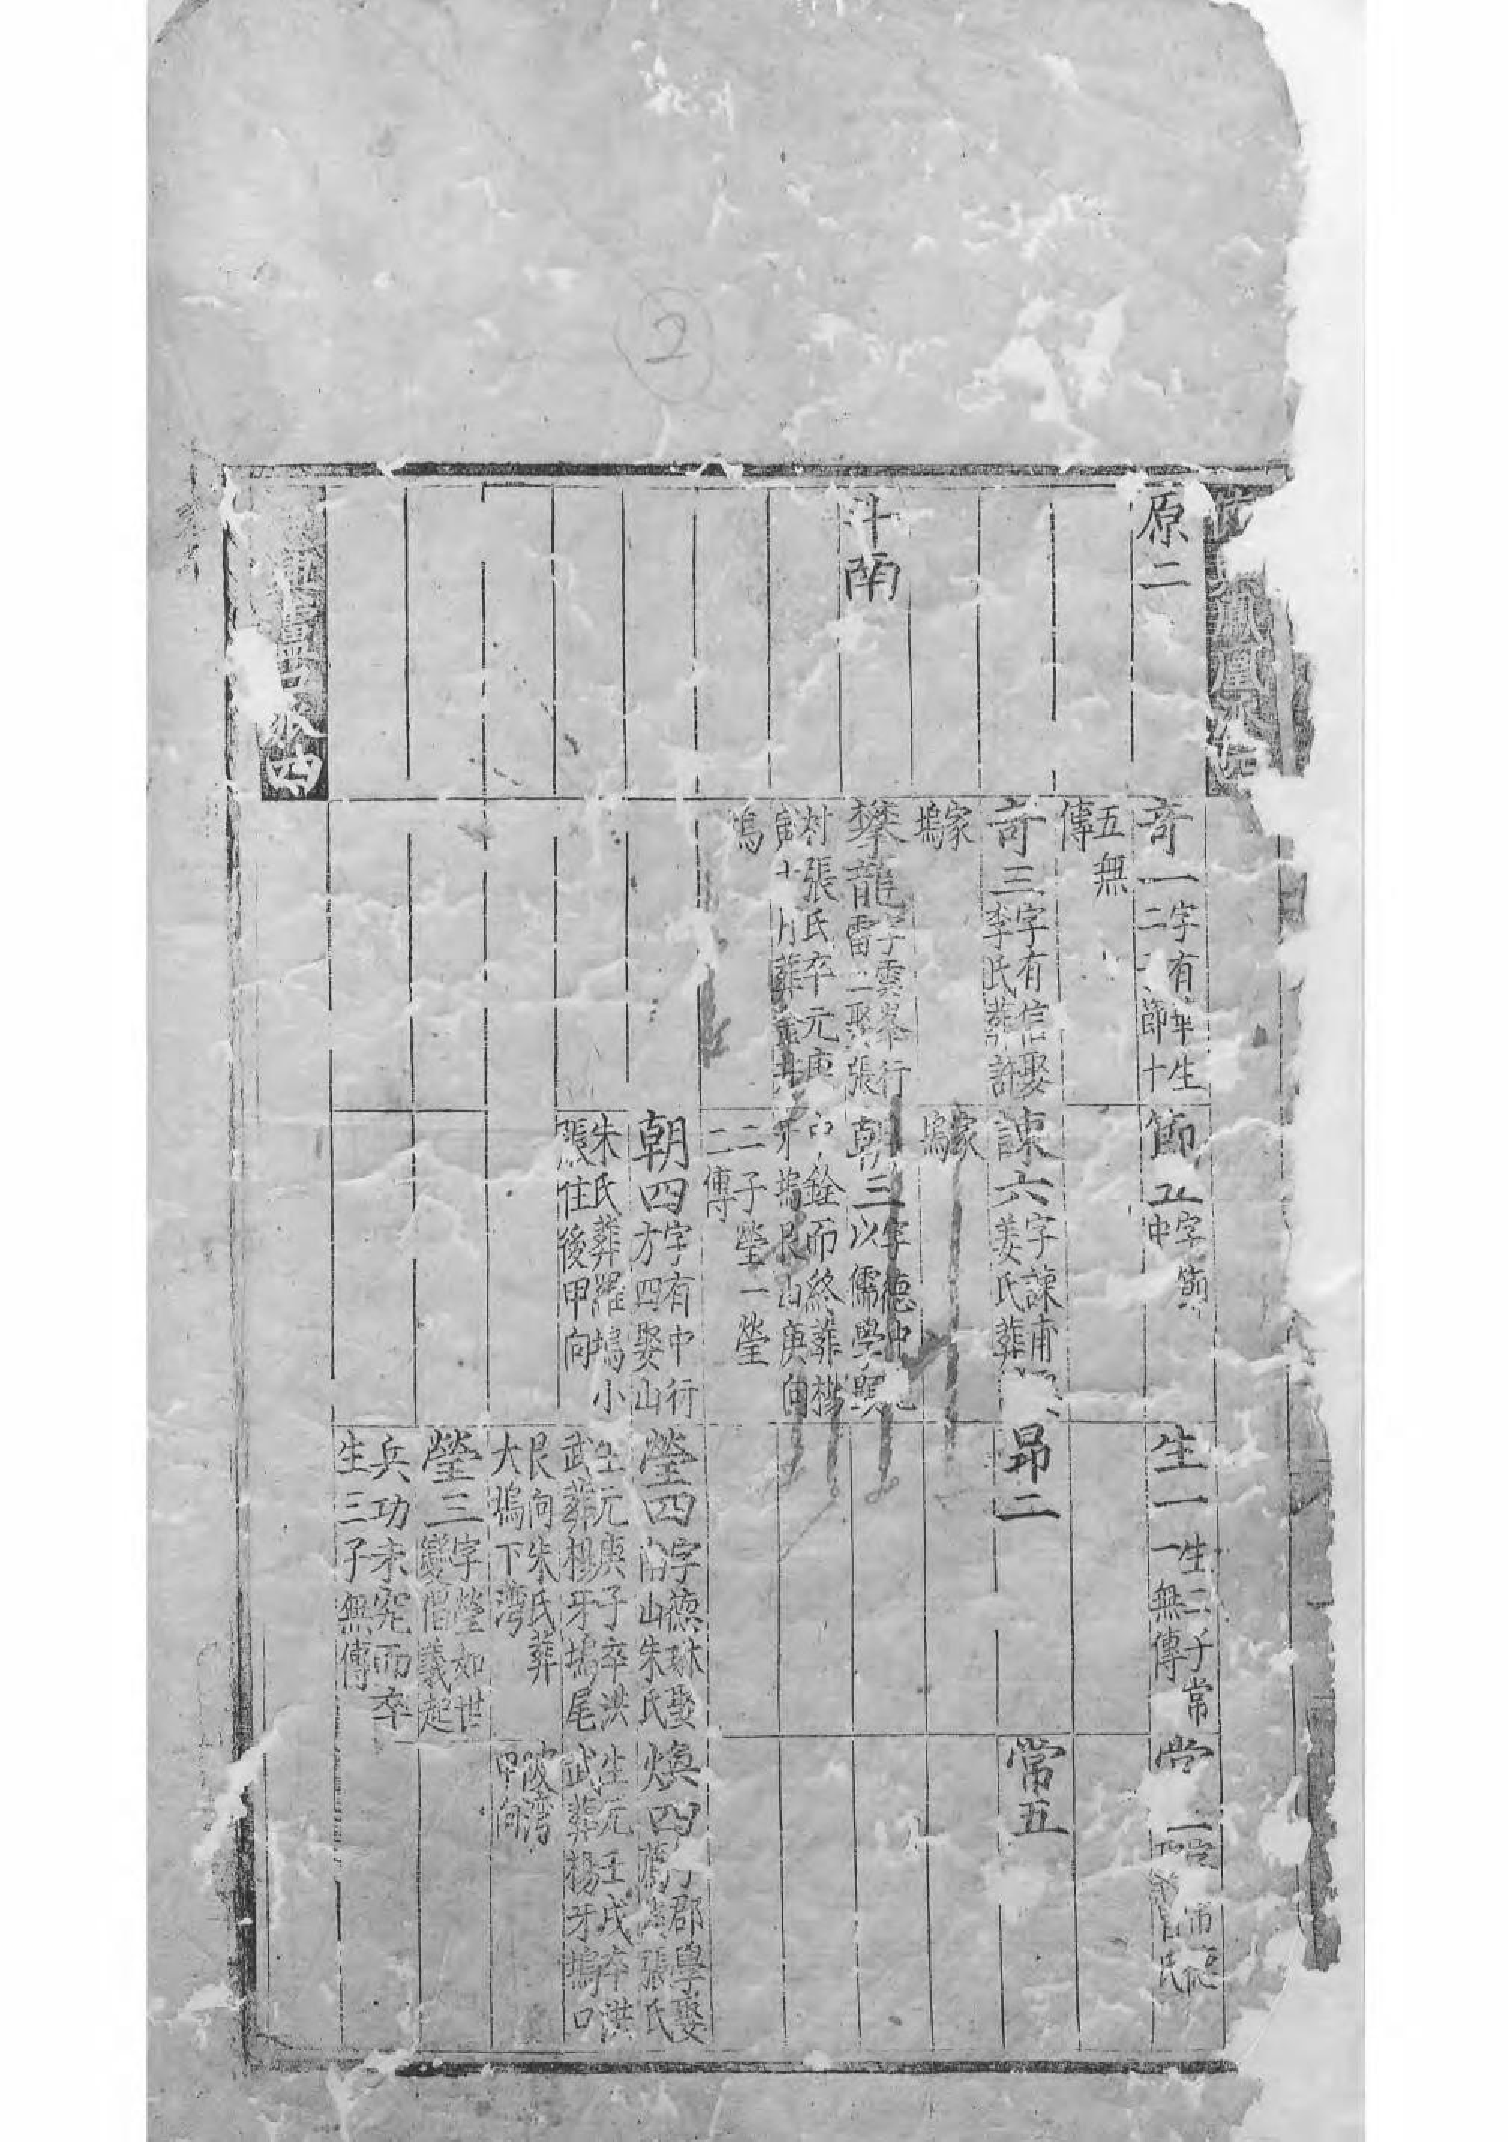 鳳凰
原二
斗南
張四
奇一字有華生
二子節十
五無
傳
奇三字有信娶
李氏葬許
家
塢
攀龍字雲峯行
雷二娶張
村張氏卒元庚
寅十月葬金井
塢
節五字節
中
諫六字諫甫
姜氏葬
家
塢
朝三字德中
以儒學顯
銓而終葬楊
牙塢艮山庚向
二子瑩一瑩
二傳
朝四字有中行
方四娶山
朱氏葬羅塢小
張住後甲向
生一生二子常
一無傳
昂二
瑩四字德琳娶
南山朱氏
生元庚子卒洪
武葬楊牙塢尾
艮向朱氏葬
大塢下灣
瑩三字瑩如世
變倡義起
兵功未究而卒
生三子無傳
常一字
氏
常五
煥四郡學娶
張氏
生元壬戌卒洪
武葬楊牙塢口
陂灣
甲向
2